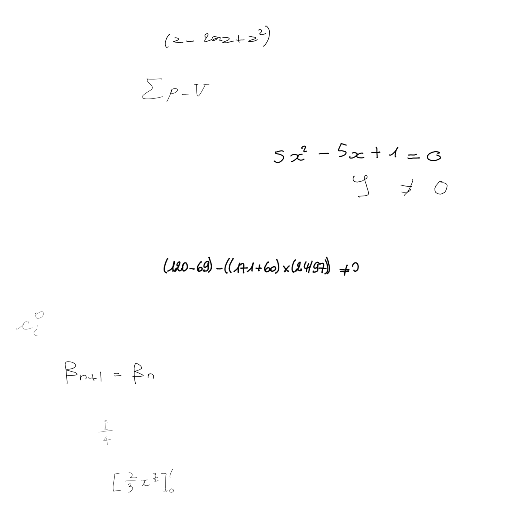 (z - 2az + z²)
∑ p - V
5x² - 5x + 1 = 0
y ≠ 0
(120 - 69) - ((171 + 60) × (24/97)) ≠ 0
c_i^0
β_{n+1} = β_n
1/4
[2/3 x^7]_0^1